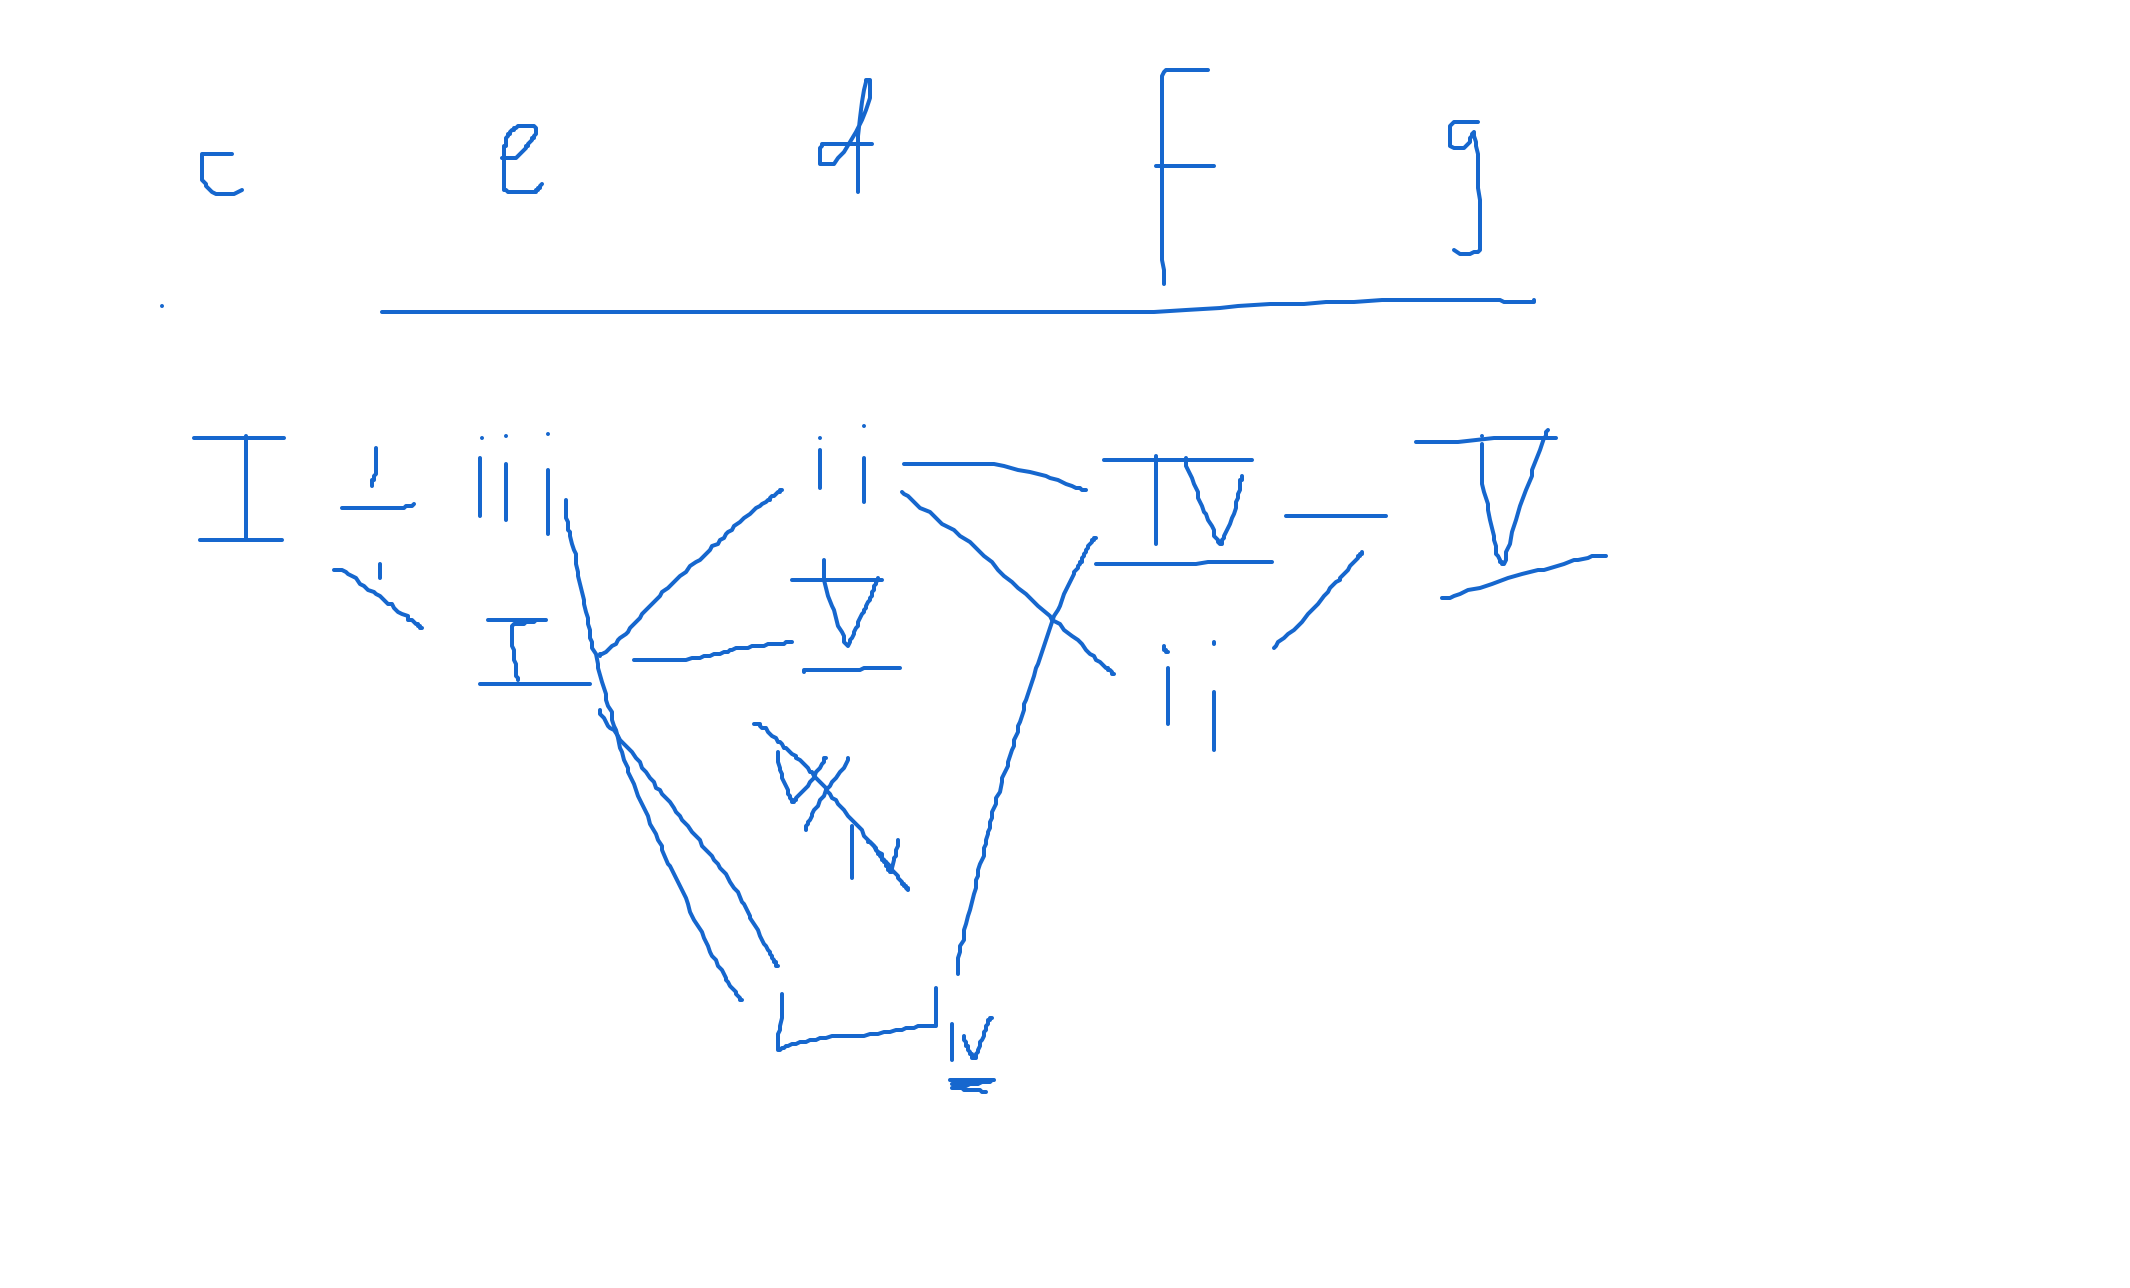 c e d F g
I iii ii IV V
I V ii
V/IV
IV